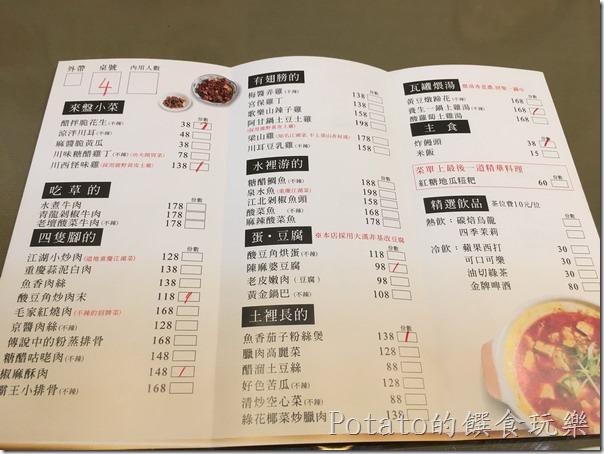 外帶 桌號 內用人數
4
來盤小菜
醋拌脆花生(不辣) 38
涼拌川耳(不辣) 48
麻醬脆黃瓜 38
川味糖醋雞丁(不辣) 78
川西怪味雞 138
吃草的
水煮牛肉 178
青龍剁椒牛肉 178
老壇酸菜牛肉(不辣) 178
四隻腳的
江湖小炒肉 128
重慶蒜泥白肉 138
魚香肉絲 138
酸豆角炒肉末 118
毛家紅燒肉(不辣的招牌菜) 168
京醬肉絲(不辣) 128
傳說中的粉蒸排骨 168
糖醋咕咾肉(不辣) 148
椒麻酥肉 148
霸王小排骨(不辣) 168
有翅膀的 份數
梅醬弄雞(不辣) 138
宮保雞丁 138
歌樂山辣子雞 158
阿甘鍋土豆土雞 188
梁山雞
川耳豆乳雞(不辣) 138
水裡游的
糖醋鯛魚(不辣) 158
泉水魚(重慶江湖菜) 198
江北剁椒魚頭 158
酸菜魚(不辣) 168
麻辣酸菜魚 188
蛋·豆腐 ※本店採用大漢非基改豆腐
酸豆角烘蛋(不辣) 118
陳麻婆豆腐 98
老皮嫩肉(豆腐) 98
黃金鍋巴(不辣) 108
土裡長的 份數
魚香茄子粉絲煲 138
臘肉高麗菜 128
醋溜土豆絲 88
好色苦瓜(不辣) 128
清炒空心菜(不辣) 88
綠花椰菜炒臘肉 138
瓦罐煨湯
黃豆燉蹄花(不辣) 168
養生一鍋土雞湯(不辣) 168
酸蘿蔔土雞湯 168
主食 份數
炸饅頭 38
米飯 15
菜單上最後一道精華料理
紅糖地瓜糍粑 60
精選飲品 茶位費10元/位
熱飲: 碳焙烏龍
四季茉莉
冷飲: 蘋果西打 30
可口可樂 30
油切綠茶 30
金牌啤酒 80
Potato的饌食玩樂